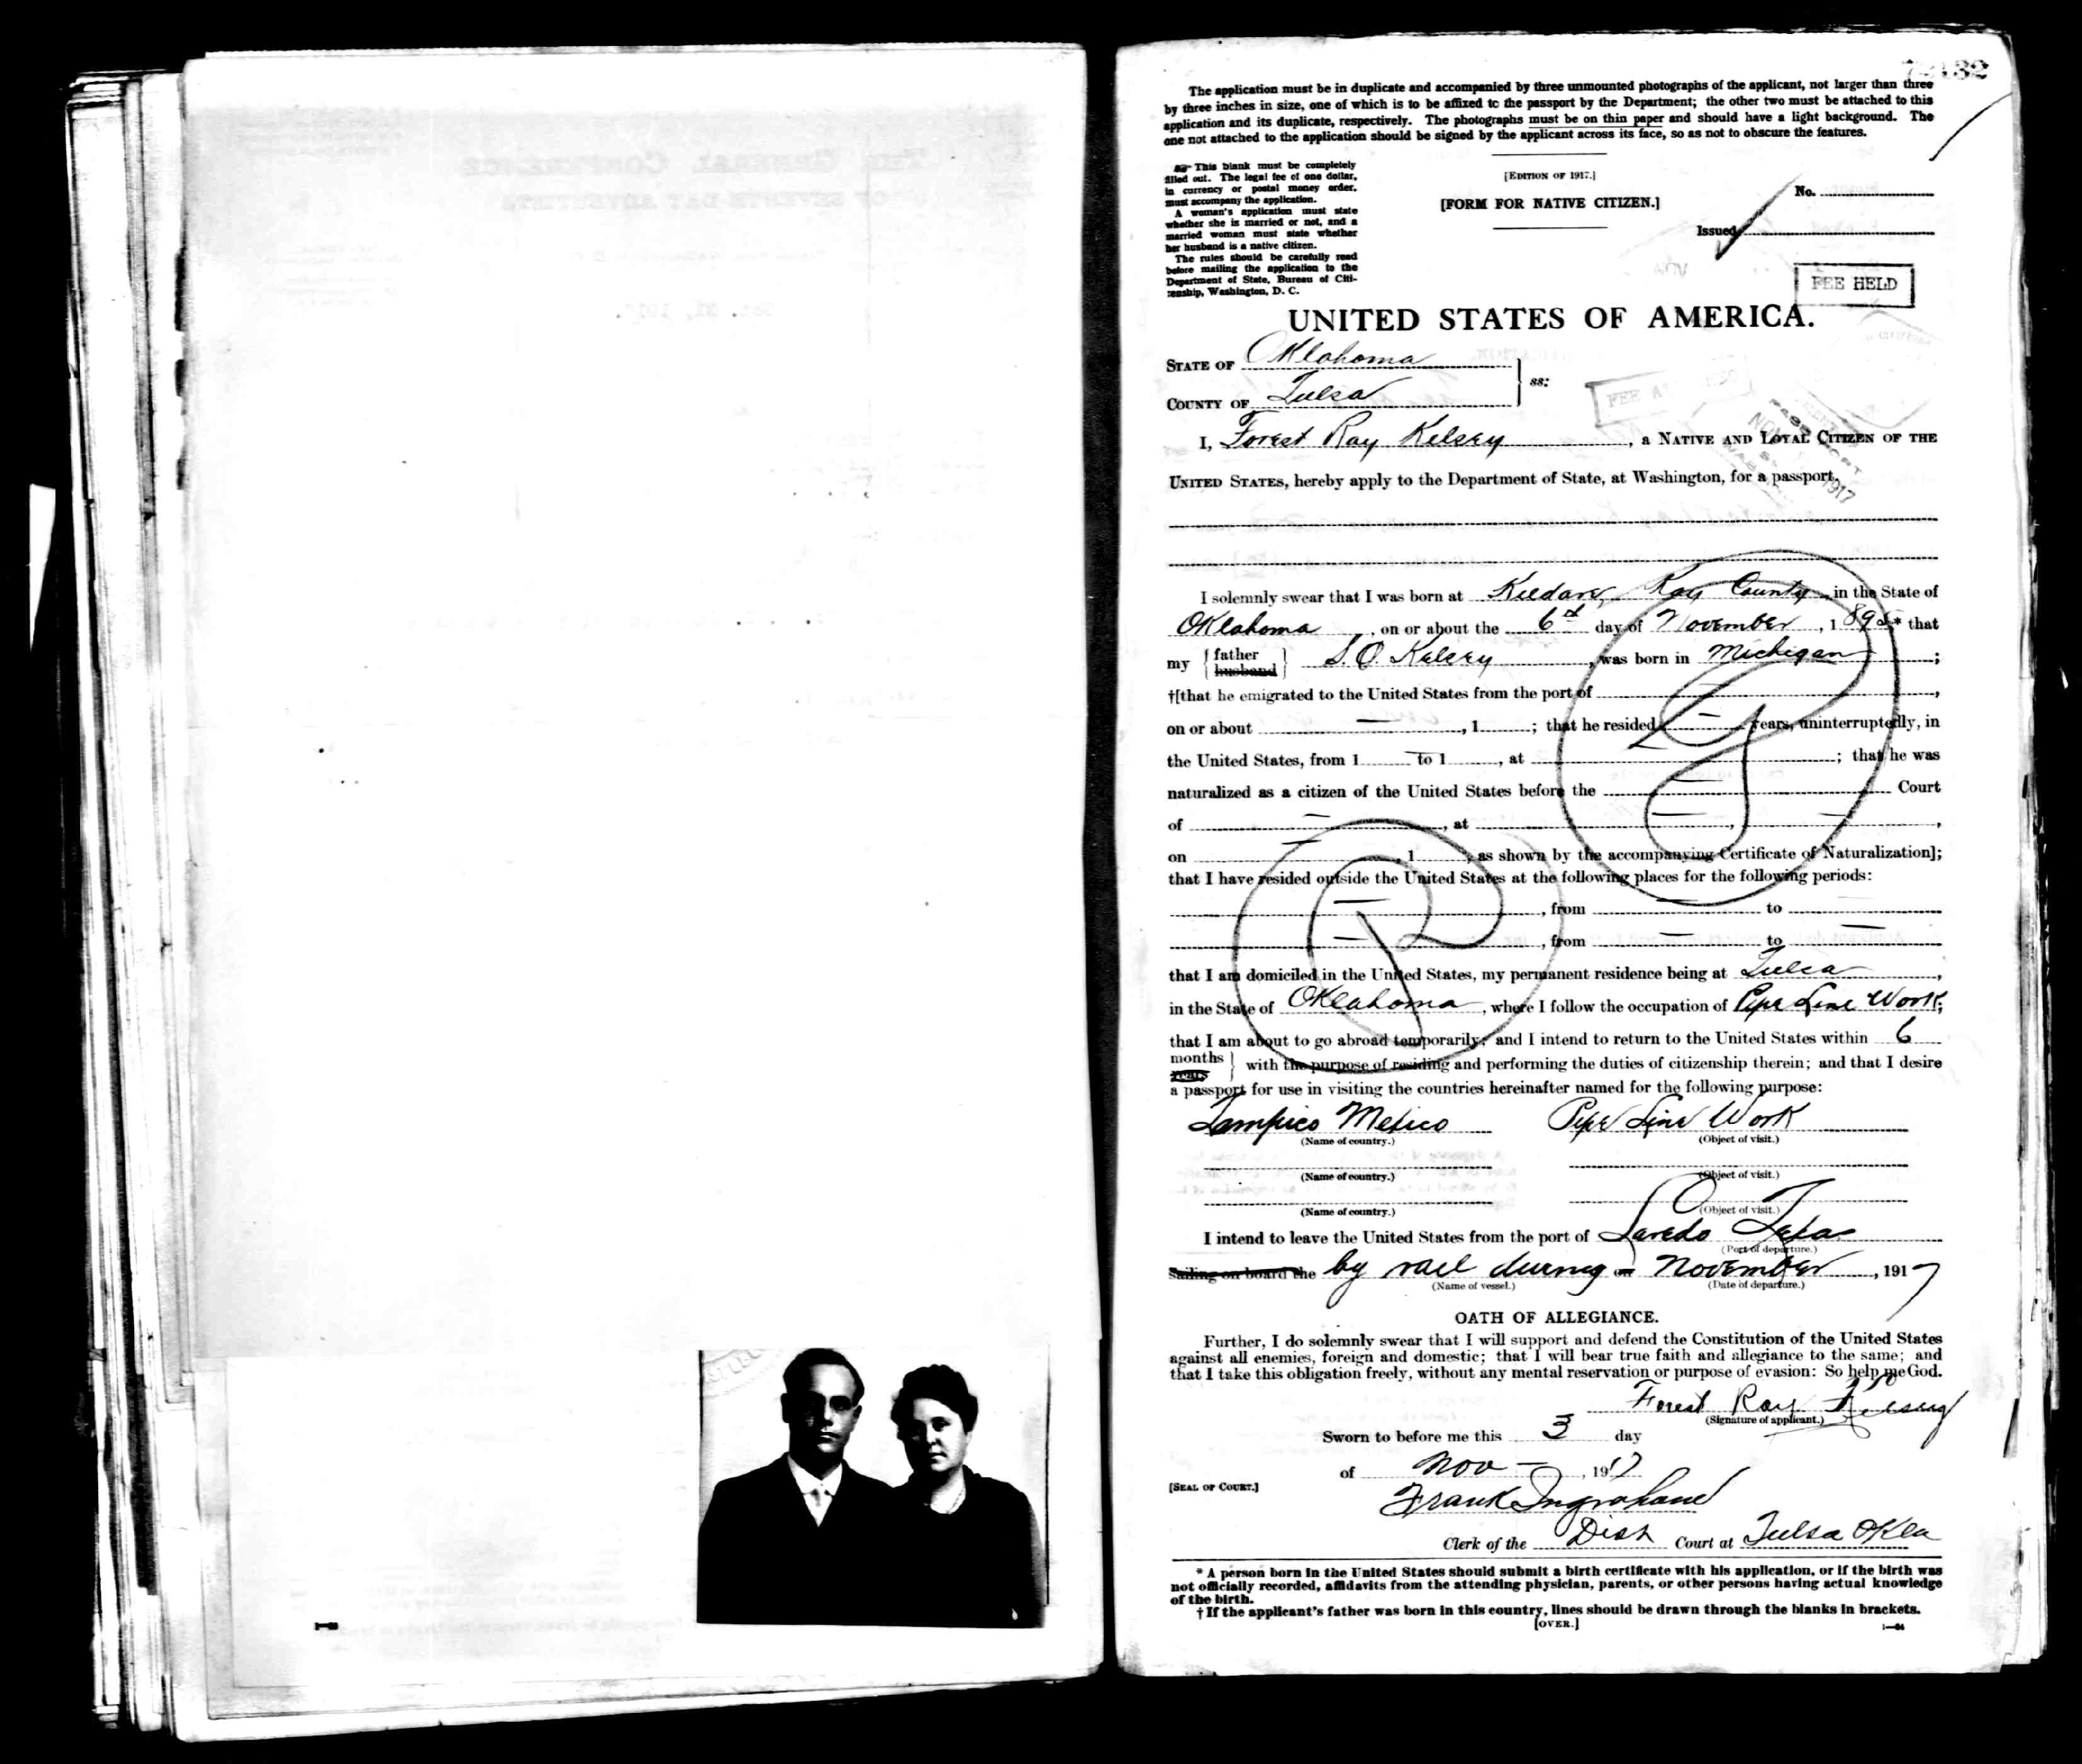 The application must be in duplicate and accompanied by three unmounted photographs of the applicant, not larger than three
by three inches in size, one of which is to be affixed to the passport by the Department; the other two must be attached to this
application and its duplicate, respectively. The photographs must be on thin paper and should have a light background. The
one not attached to the application should be signed by the applicant across its face, so as not to obscure the features.
This blank must be completely
filled out. The legal fee of one dollar,
in currency or postal money order,
must accompany the application.
A woman's application must state
whether she is married or not, and a
married woman must state whether
her husband is a native citizen.
The rules should be carefully read
before mailing the application to the
Department of State, Bureau of Citi-
zenship, Washington, D. C.
[EDITION OF 1917.]
[FORM FOR NATIVE CITIZEN.]
No.
Issued
FEE HELD
UNITED STATES OF AMERICA.
STATE OF Oklahoma
COUNTY OF Tulsa
ss:
I, Forest Ray Kelsey, a NATIVE AND LOYAL CITIZEN OF THE
UNITED STATES, hereby apply to the Department of State, at Washington, for a passport.
PASSPORT
1917
I solemnly swear that I was born at Kildare, Kay County, in the State of
Oklahoma, on or about the 6th day of November, 1895* that
my {father husband} S. O. Kelsey, was born in Michigan;
†[that he emigrated to the United States from the port of ,
on or about — , 1 ; that he resided — years, uninterruptedly, in
the United States, from 1 to 1 , at ; that he was
naturalized as a citizen of the United States before the Court
of — , at — , — ,
on — , 1 , as shown by the accompanying Certificate of Naturalization];
that I have resided outside the United States at the following places for the following periods:
— , from — to —
— , from — to —
that I am domiciled in the United States, my permanent residence being at Tulsa,
in the State of Oklahoma, where I follow the occupation of Pipe Line Work;
that I am about to go abroad temporarily; and I intend to return to the United States within 6
months
years
with the purpose of residing and performing the duties of citizenship therein; and that I desire
a passport for use in visiting the countries hereinafter named for the following purpose:
Tampico Mexico Pipe Line Work
(Name of country.) (Object of visit.)
(Name of country.) (Object of visit.)
(Name of country.) (Object of visit.)
I intend to leave the United States from the port of Laredo Texas
(Port of departure.)
Sailing on board the by rail during on November, 1917
(Name of vessel.) (Date of departure.)
OATH OF ALLEGIANCE.
Further, I do solemnly swear that I will support and defend the Constitution of the United States
against all enemies, foreign and domestic; that I will bear true faith and allegiance to the same; and
that I take this obligation freely, without any mental reservation or purpose of evasion: So help me God.
Forest Ray Kelsey
(Signature of applicant.)
Sworn to before me this 3 day
of Nov — , 1917
[SEAL OF COURT.]
Frank Ingraham
Clerk of the Dist Court at Tulsa Okla
* A person born in the United States should submit a birth certificate with his application, or if the birth was
not officially recorded, affidavits from the attending physician, parents, or other persons having actual knowledge
of the birth.
† If the applicant's father was born in this country, lines should be drawn through the blanks in brackets.
[OVER.]